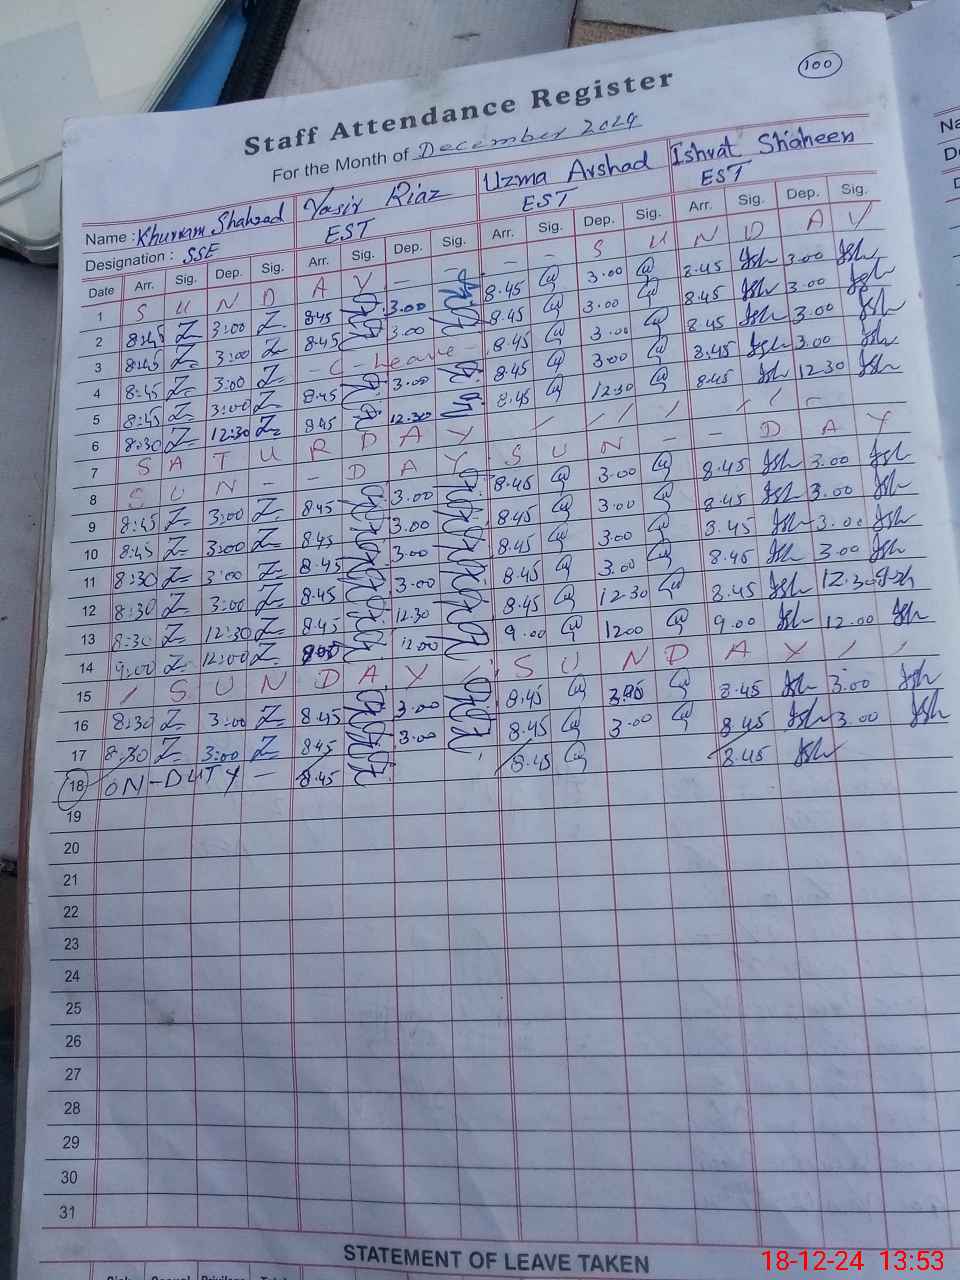 100
Staff Attendance Register
For the Month of December 2024
Name : Khurram Shahzad Yasir Riaz Uzma Arshad Ishrat Shaheen
Designation : SSE EST EST EST
Date Arr. Sig. Dep. Sig. Arr. Sig. Dep. Sig. Arr. Sig. Dep. Sig. Arr. Sig. Dep. Sig.
1 S U N D A Y - - - - S U N D A Y
2 8:45 3:00 8.45 3.00 8.45 3.00 8.45 3.00
3 8:45 3:00 8.45 3.00 8.45 3.00 8.45 3.00
4 8:45 3:00 - C - Leave - 8.45 3.00 8.45 3.00
5 8:45 3:00 8.45 3.00 8.45 3.00 8.45 3.00
6 8:30 12:30 8.45 12.30 8.45 12.30 8.45 12.30
7 S A T U R D A Y / / / / / / -
8 S U N - - D A Y S U N - - D A Y
9 8:45 3:00 8.45 3.00 8.45 3.00 8.45 3.00
10 8:45 3:00 8.45 3.00 8.45 3.00 8.45 3.00
11 8:30 3:00 8.45 3.00 8.45 3.00 8.45 3.00
12 8:30 3:00 8.45 3.00 8.45 3.00 8.45 3.00
13 8:30 12:30 8.45 12.30 8.45 12.30 8.45 12.30
14 9:00 12:00 12.00 9.00 1200 9.00 12.00
15 / S U N D A Y / S U N D A Y / /
16 8:30 3:00 8.45 3.00 8.45 8.45 3.00
17 8:30 3:00 8.45 3.00 8.45 3.00 8.45 3.00
18 ON-DUTY - 8.45 8.45 8.45
19
20
21
22
23
24
25
26
27
28
29
30
31
STATEMENT OF LEAVE TAKEN
18-12-24 13:53